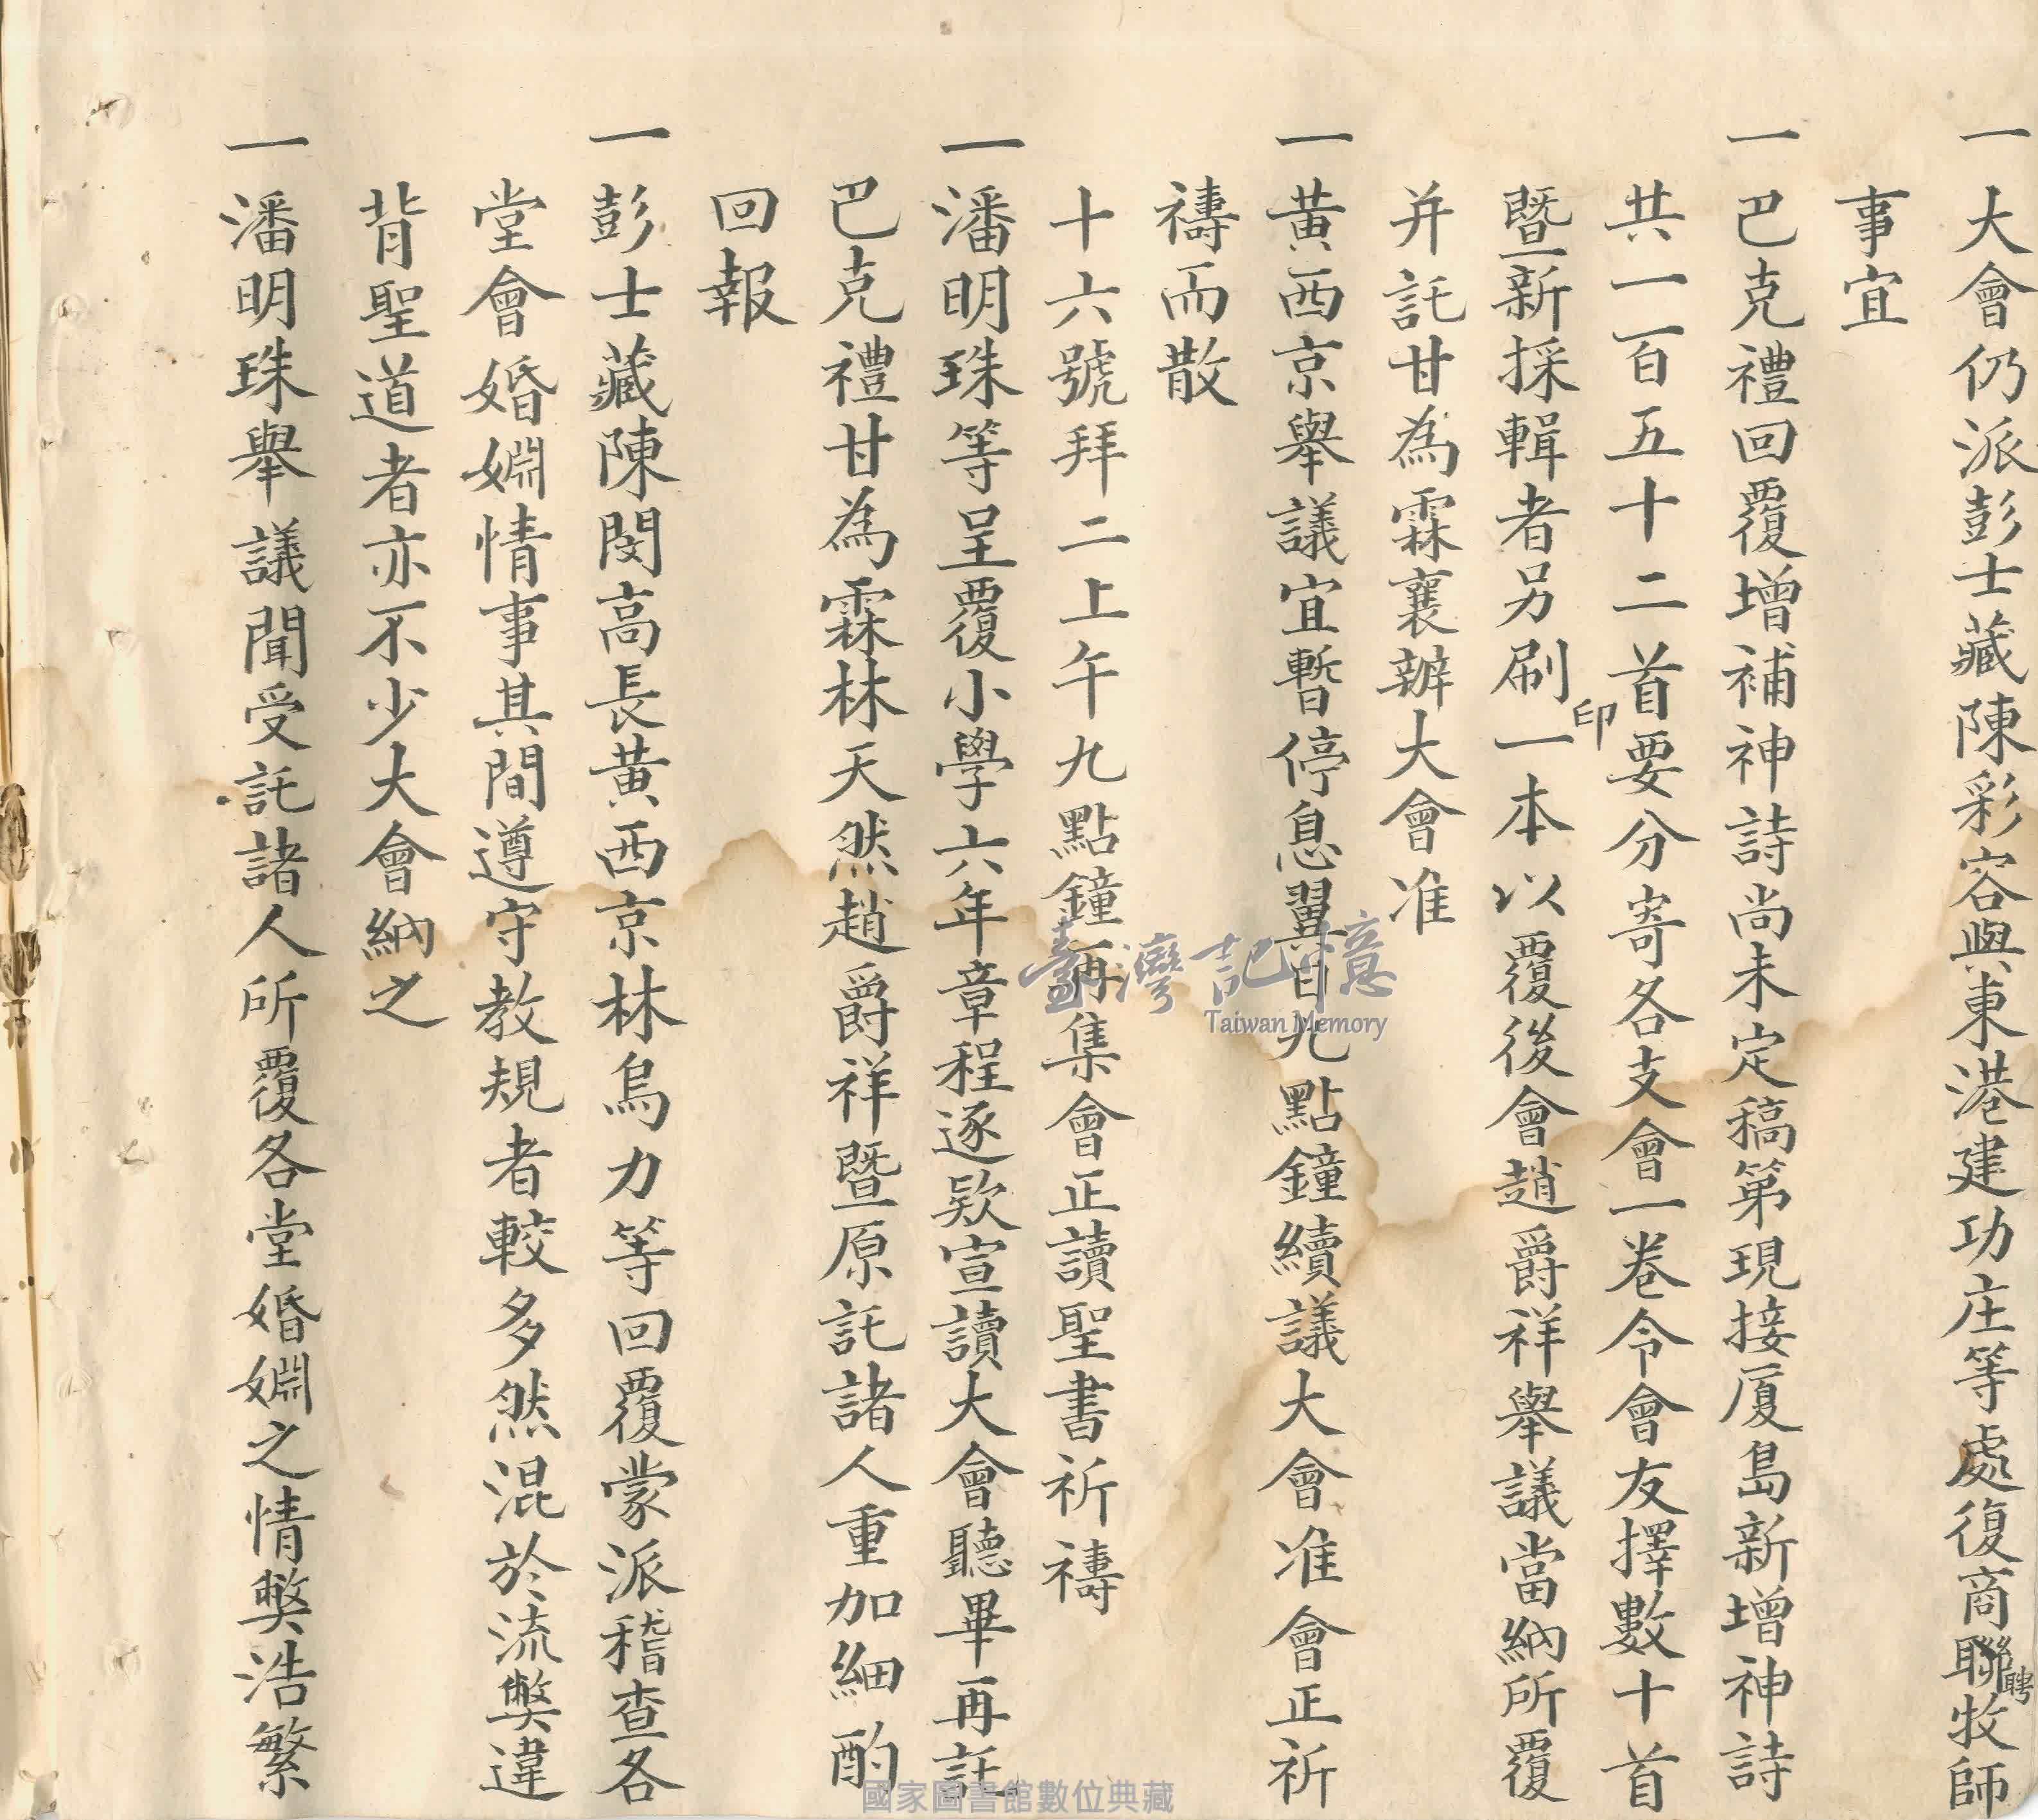 一大會仍派彭士藏陳彩容與東港建功庄等處復商聯聘牧師
事宜
一巴克禮回覆增補神詩尚未定稿第現接厦島新增神詩
共一百五十二首要分寄各支會一卷令會友擇數十首
暨新採輯者另刷印一本以覆後會趙爵祥舉議當納所覆
并託甘為霖襄辦大會准
一黄西京舉議宜暫停息翼日九點鐘續議大會准會正祈
禱而散
十六號拜二上午九點鐘再集會正讀聖書祈禱
一潘明珠等呈覆小學六年章程逐欵宣讀大會聽畢再託
巴克禮甘為霖林天然趙爵祥暨原託諸人重加細酌
回報
一彭士藏陳閔高長黄西京林烏力等回覆蒙派稽查各
堂會婚婣情事其間遵守教規者較多然混於流獘違
背聖道者亦不少大會納之
一潘明珠舉議聞受託諸人所覆各堂婚婣之情獘浩繁
臺灣記憶
Taiwan Memory
國家圖書館數位典藏